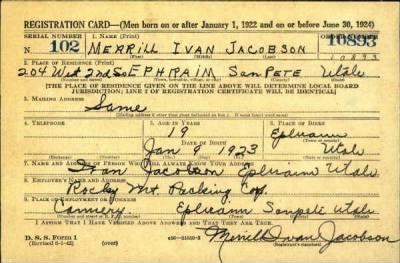 REGISTRATION CARD—(Men born on or after January 1, 1922 and on or before June 30, 1924)
SERIAL NUMBER 1. NAME (Print) ORDER NUMBER
N 102 MERRILL IVAN JACOBSON 10893
10893
2. PLACE OF RESIDENCE (Print)
204 West 2nd So EPHRAIM SanPETE Utah
[THE PLACE OF RESIDENCE GIVEN ON THE LINE ABOVE WILL DETERMINE LOCAL BOARD
JURISDICTION; LINE 2 OF REGISTRATION CERTIFICATE WILL BE IDENTICAL]
3. MAILING ADDRESS
Same
4. TELEPHONE 5. AGE IN YEARS 6. PLACE OF BIRTH
19 Ephraim
DATE OF BIRTH
Jan 9 1923 Utah
7. NAME AND ADDRESS OF PERSON WHO WILL ALWAYS KNOW YOUR ADDRESS
Ivan Jacobson Ephraim Utah
8. EMPLOYER'S NAME AND ADDRESS
Rocky Mt Packing Cop.
9. PLACE OF EMPLOYMENT OR BUSINESS
Cannery. Ephraim Sanpete Utah
I AFFIRM THAT I HAVE VERIFIED ABOVE ANSWERS AND THAT THEY ARE TRUE.
D. S. S. Form 1
(Revised 6-1-42) (over)
Merrill Ivan Jacobson